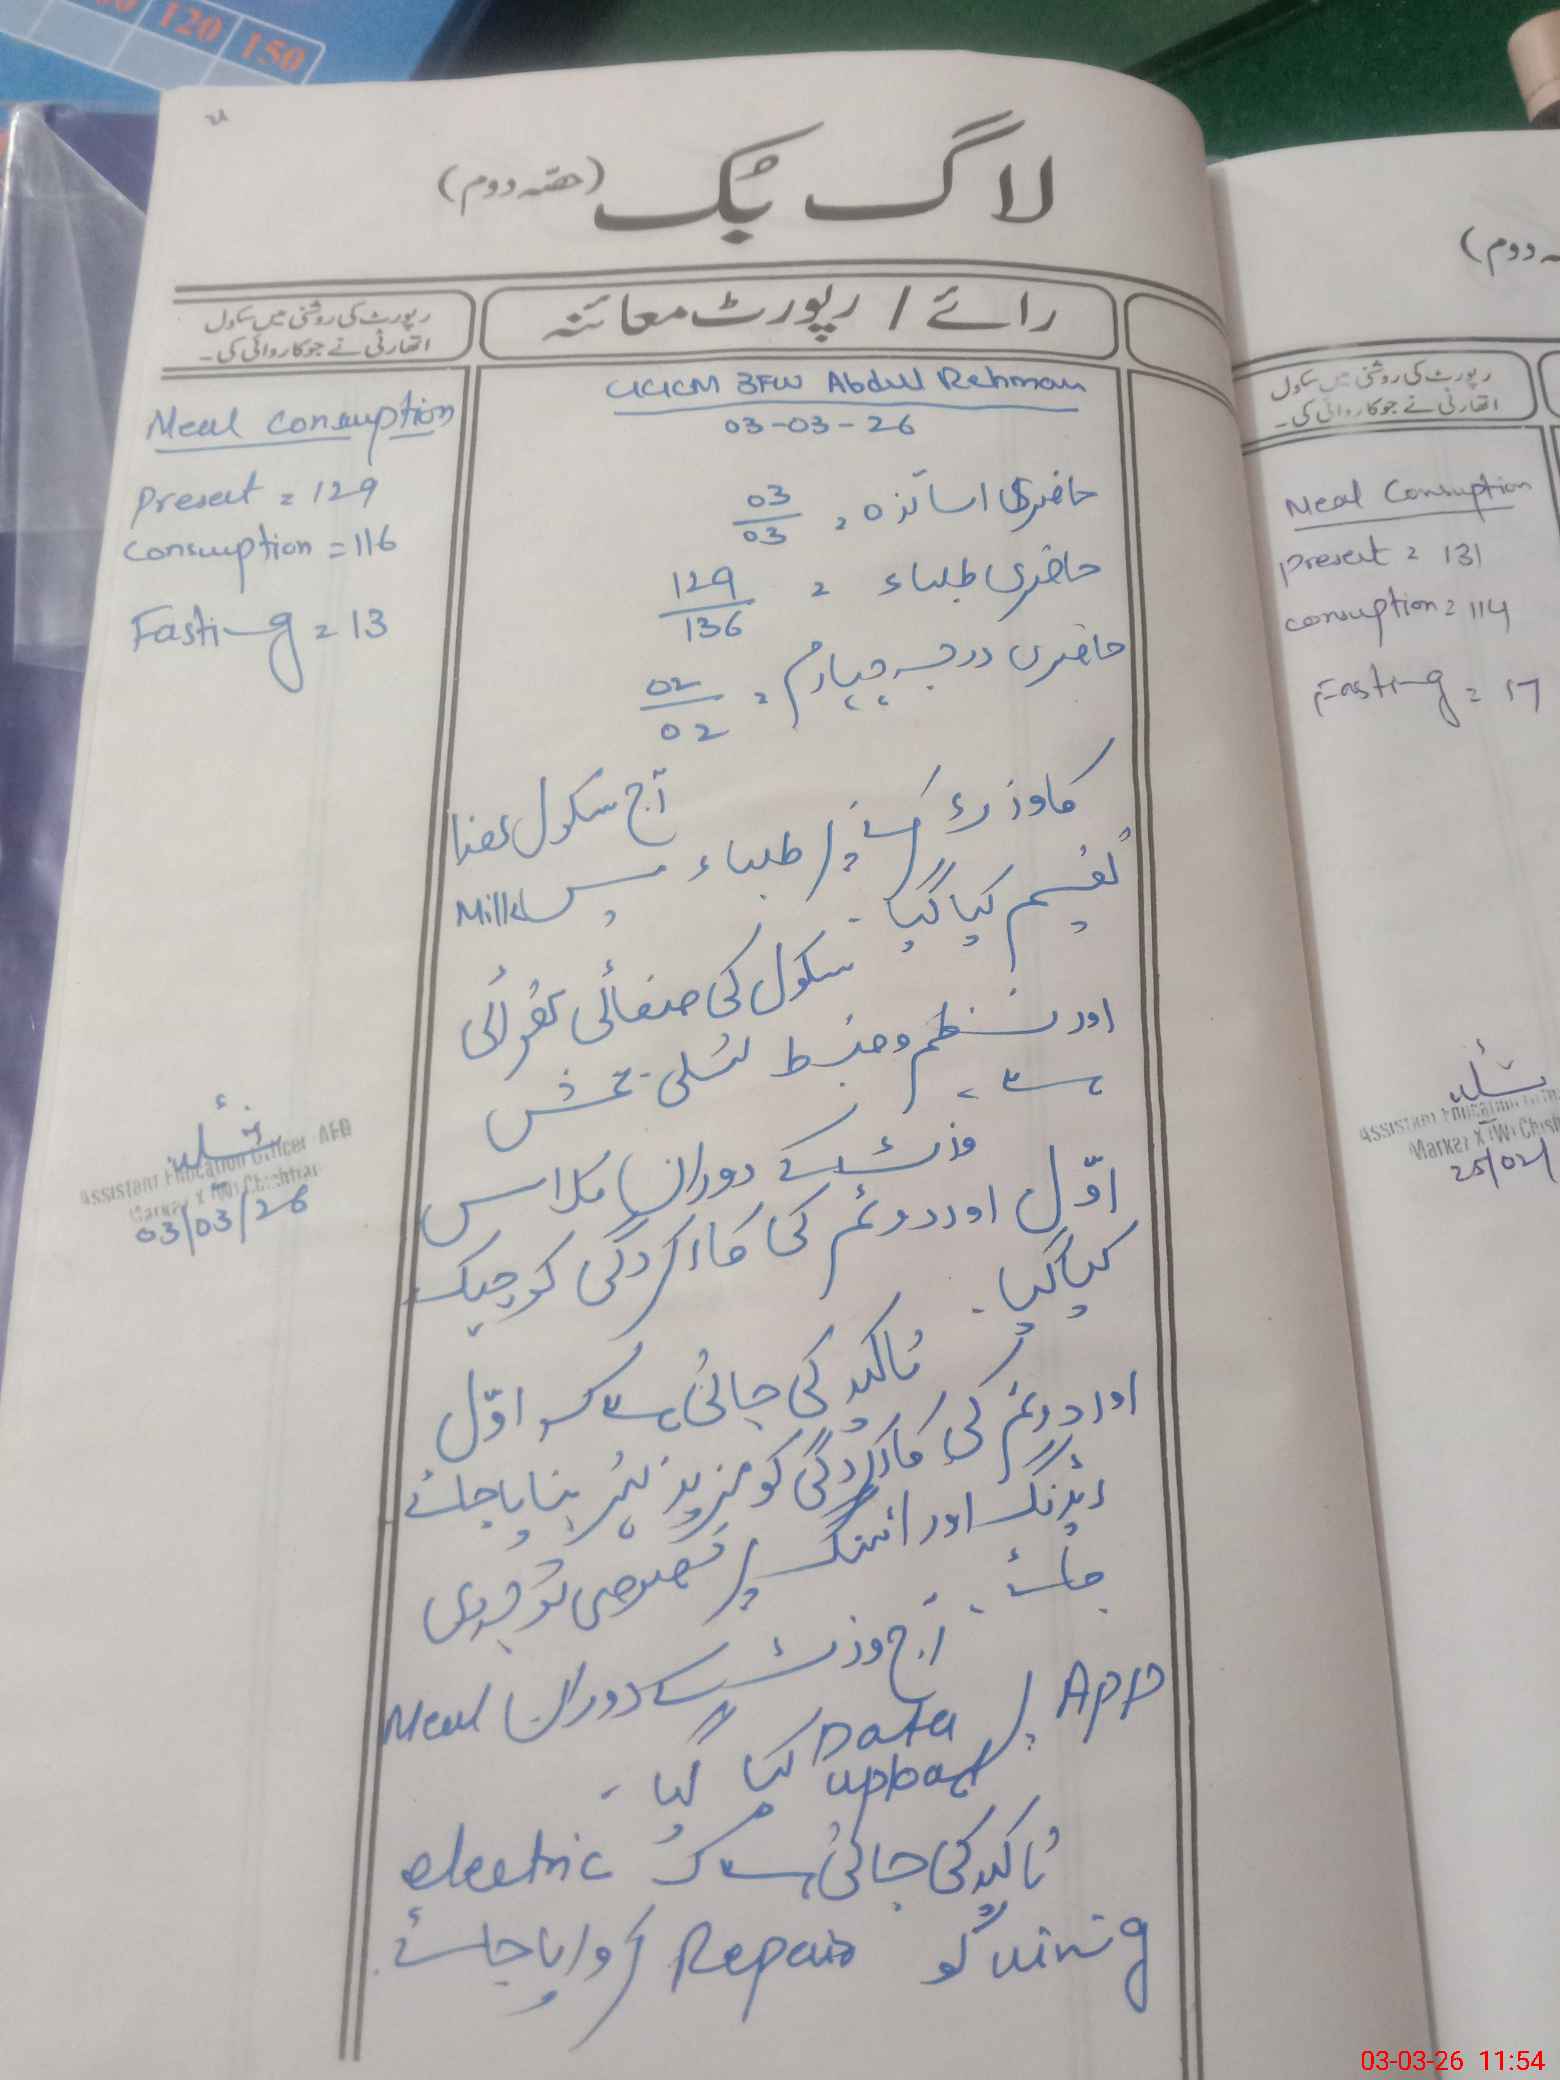 120 150
لاگ بک (حصّہ دوم)
رائے / رپورٹ معائنہ
رپورٹ کی روشنی میں سکول
اتھارٹی نے جو کاروائی کی۔
Abdul Rehman
03-03-26
حاضری اساتذہ = 03/03
حاضری طلباء = 129/136
حاضری درجہ چہارم = 02/02
آج سکول ھذا
کا وزٹ کرنے پر طلباء میں Milk
تقسیم کیا گیا۔
سکول کی صفائی ستھرائی
اور نظم و ضبط تسلی بخش
ہے۔
وزٹ کے دوران کلاس
اوّل اور دوئم کی کارکردگی کو چیک
کیا گیا۔
تاکید کی جاتی ہے کہ اوّل
اور دوئم کی کارکردگی کو مزید بہتر بنایا جائے
ریڈنگ اور رائٹنگ پر خصوصی توجہ دی
جائے۔
آج وزٹ کے دوران Meal
App پر Data upload کیا گیا۔
تاکید کی جاتی ہے کہ electric
wiring کو Repair کروایا جائے۔
Meal consuption
Present = 129
consuption = 116
Fasting = 13
Assistant Education Officer AEO
Markaz X (W) Chishtian
03/03/26
ہ دوم)
رپورٹ کی روشنی میں سکول
اتھارٹی نے جو کاروائی کی۔
Meal Consuption
present = 131
consuption = 114
Fasting = 17
Assistant Education
Markaz X (W) Chisht
25/02/
03-03-26 11:54